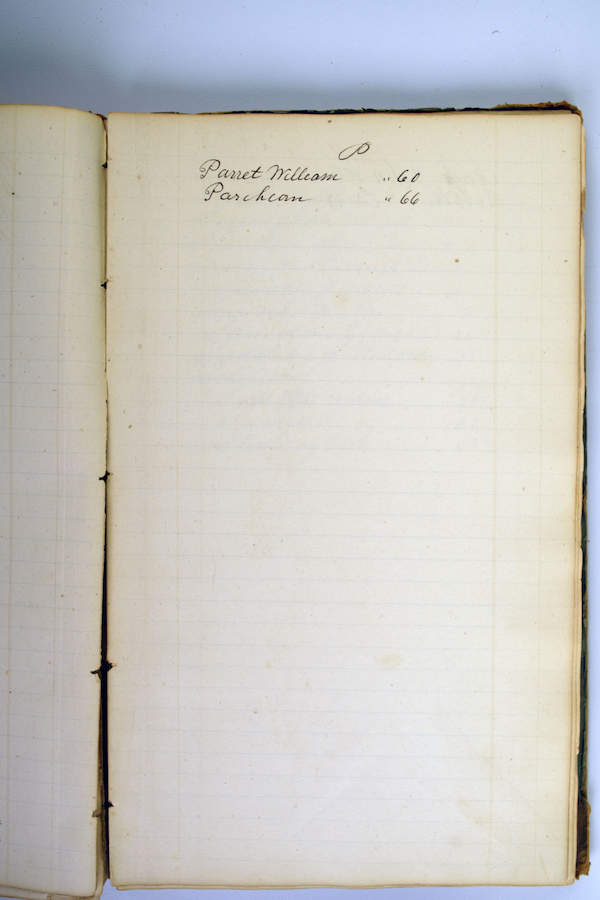 P
Parret William " 60
Parcheorn " 66